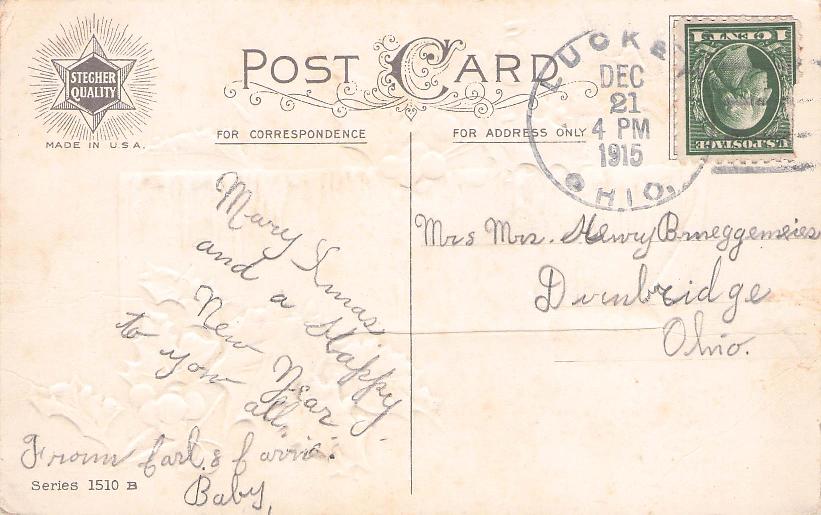 STECHER
QUALITY
MADE IN U.S.A.
POST CARD
FOR CORRESPONDENCE
FOR ADDRESS ONLY
LUCKEY
DEC
21
4 PM
1915
OHIO.
U.S. POSTAGE
1 CENT 1
Mary Xmas
and a Happy
New Year
to you all.
From Earl &
Baby,
Mrs Mrs. Henry Brueggemeier
Dunbridge
Ohio.
Series 1510 B